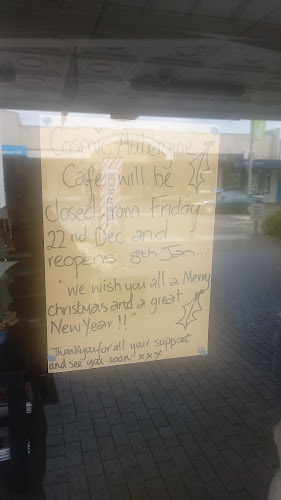 Cosmic Aubergine
Cafe will be
closed from Friday
22nd Dec and
reopens 8th Jan...
"we wish you all a Merry
christmas and a great
New Year!!"
Thankyou for all your support
and see you soon xxx